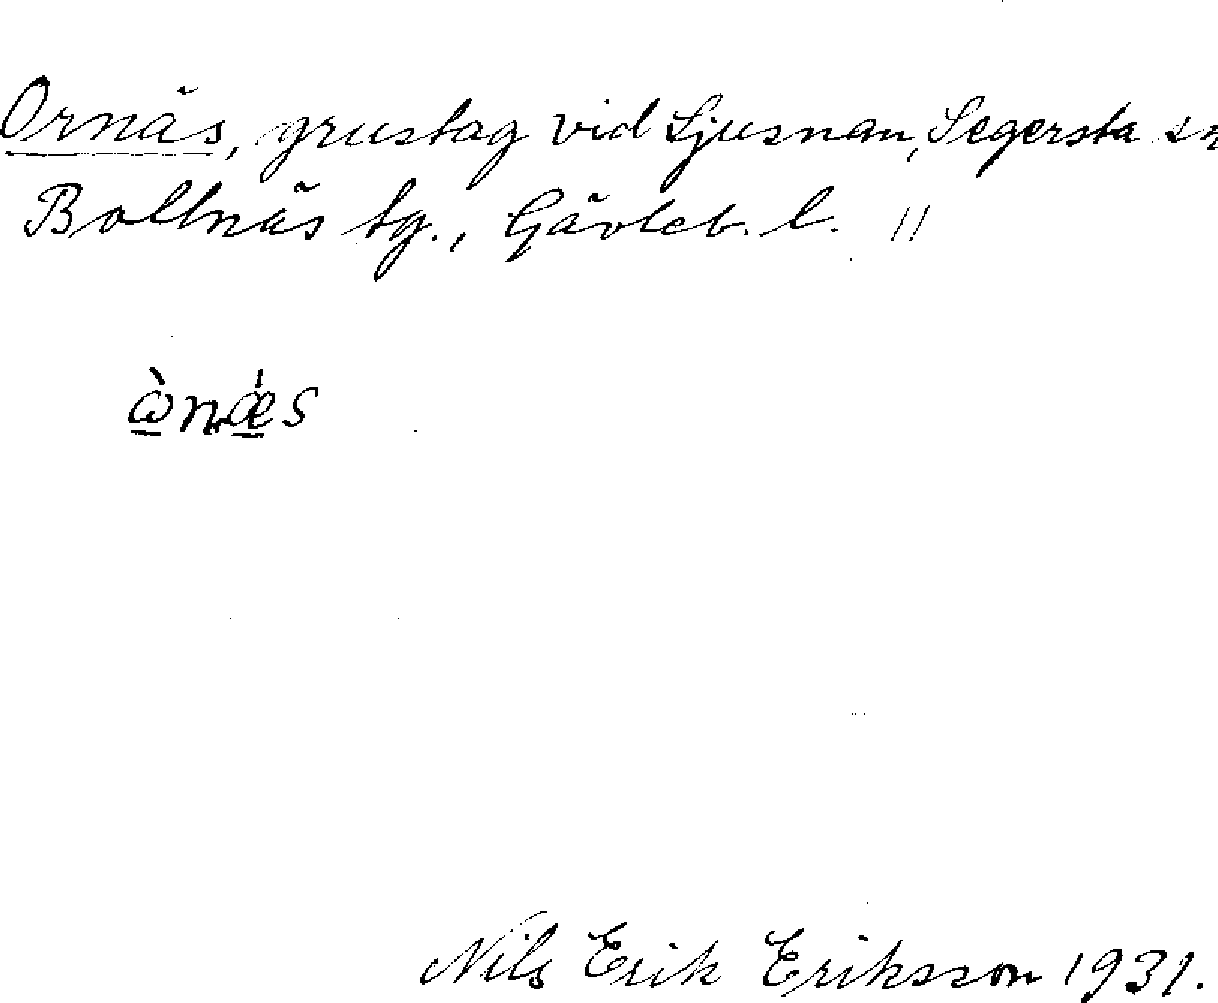 Ornäs, grustag vid Ljusnan, Segersta sn
Bollnäs tg., Gävleb. l. !!
Nils Erik Eriksson 1931.